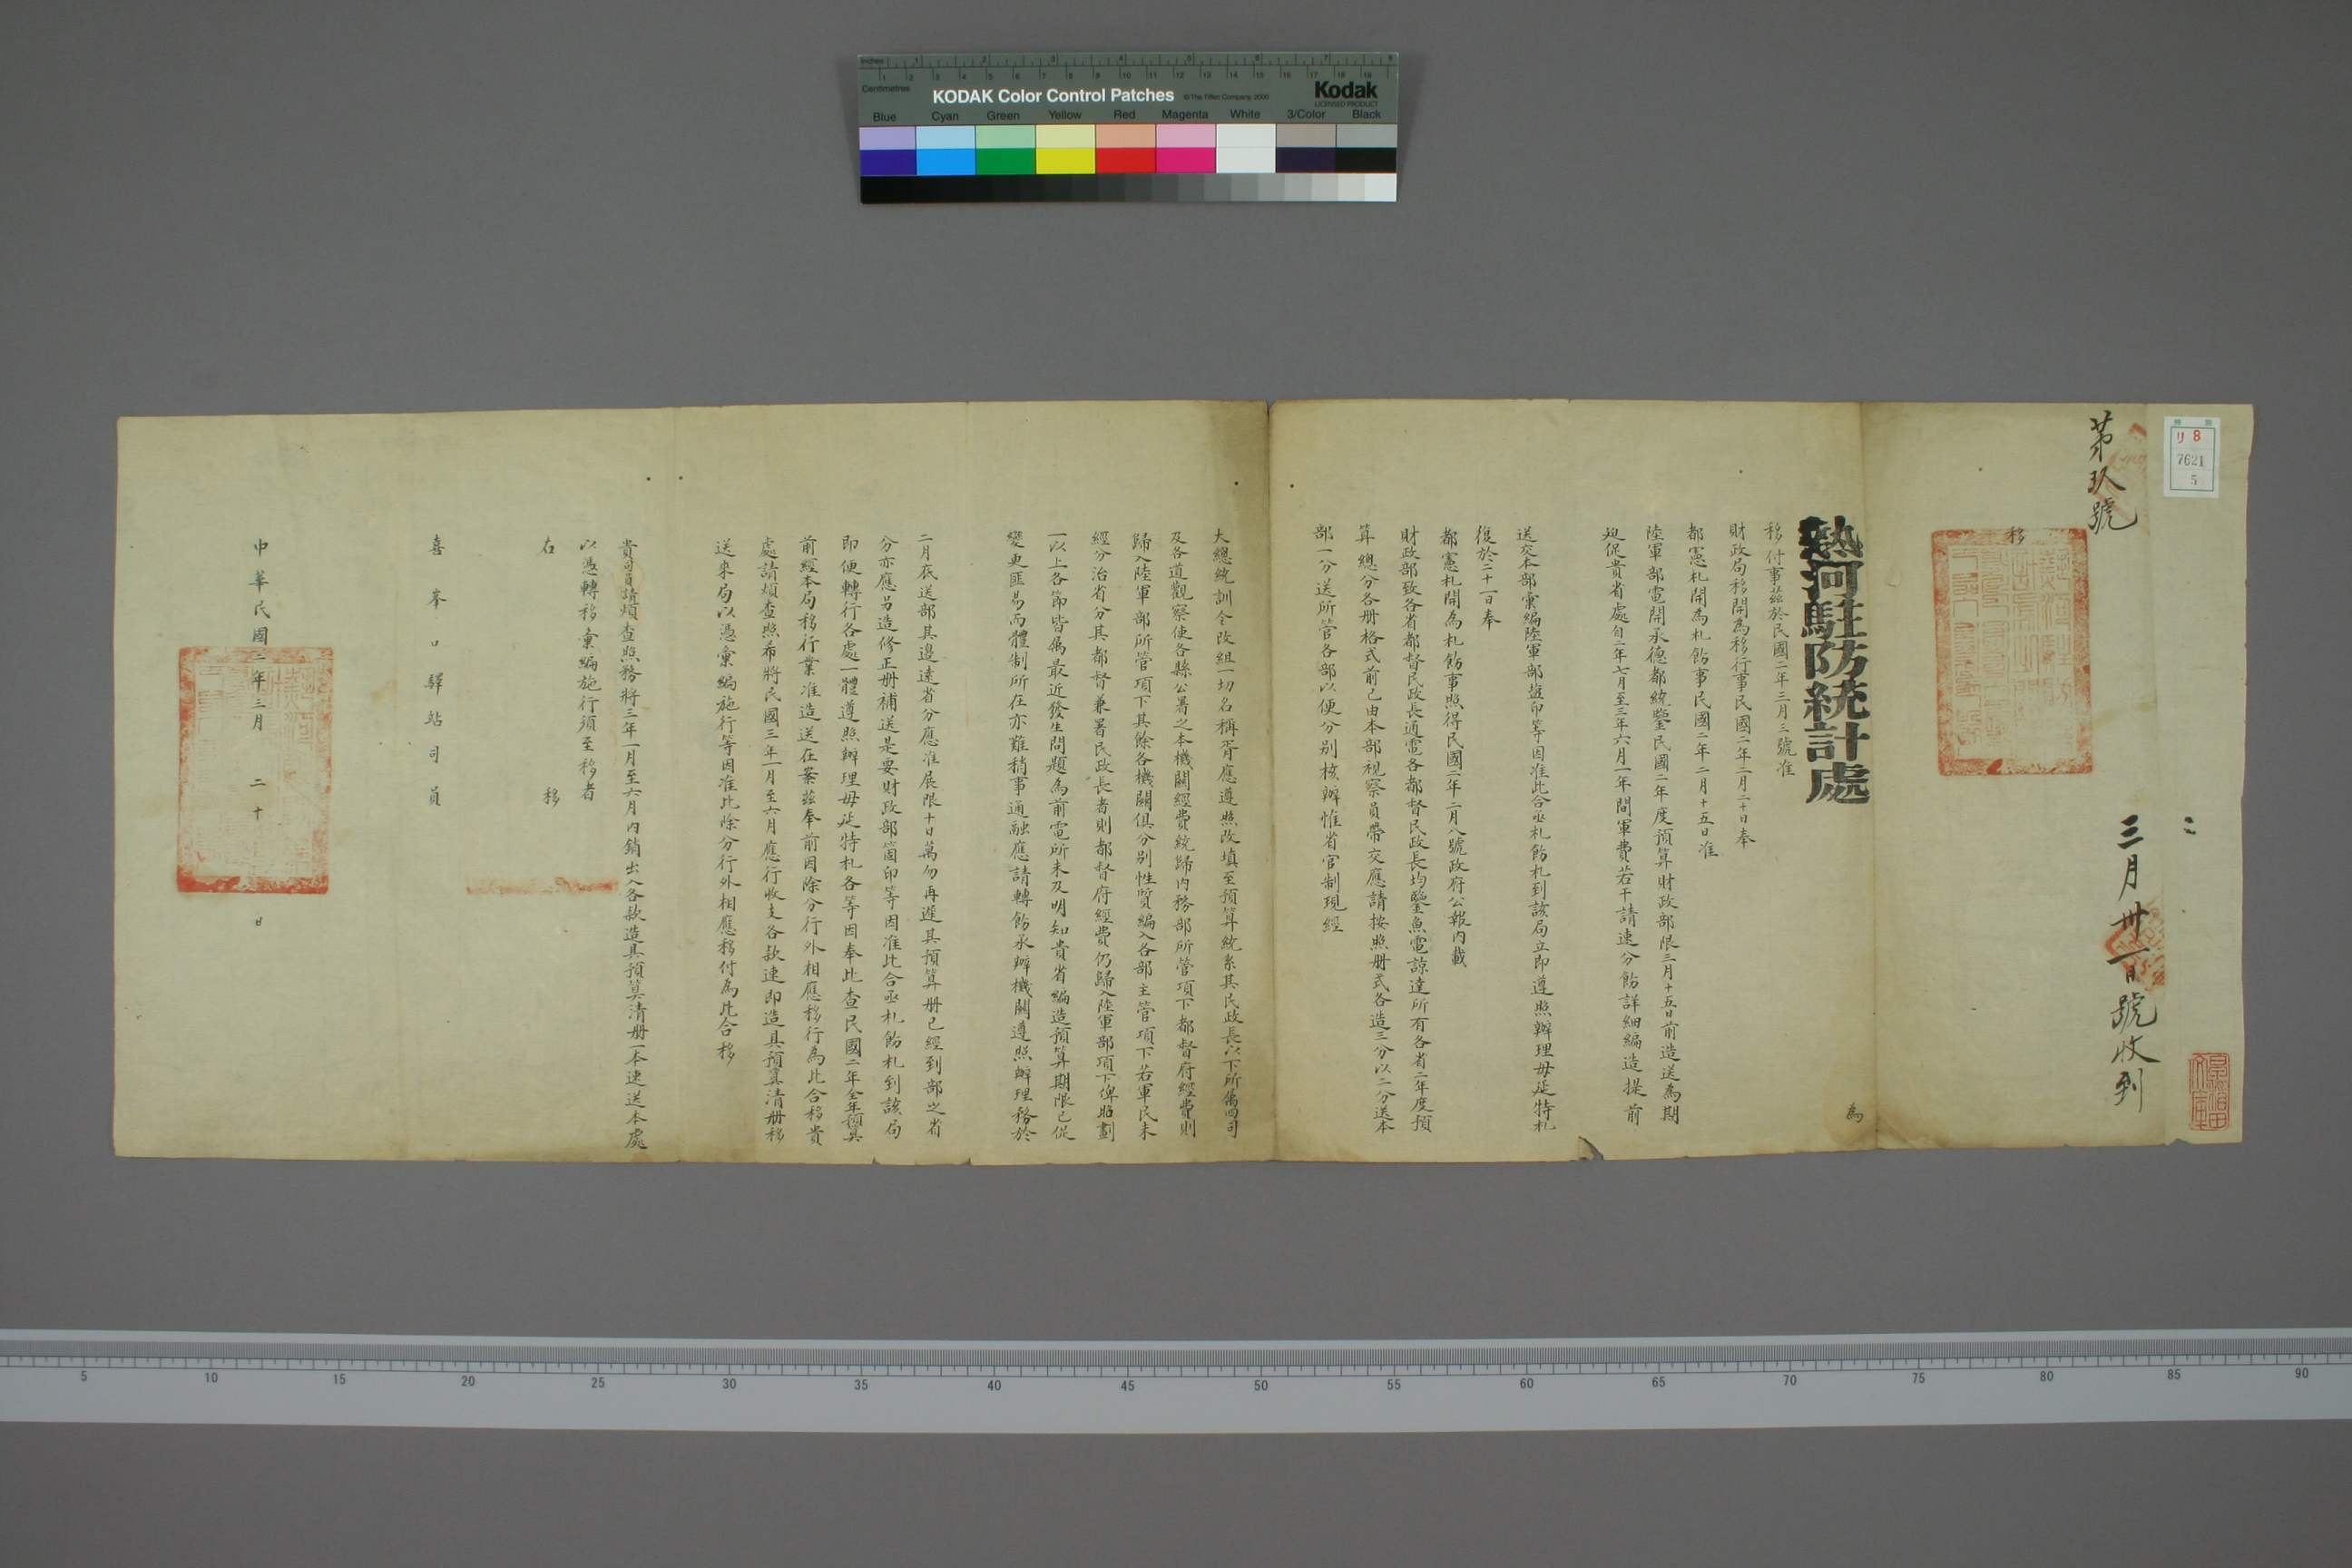 KODAK Color Control Patches
Kodak
LICENSED PRODUCT
© The Tiffen Company, 2000
Inches
Centimetres
Blue Cyan Green Yellow Red Magenta White 3/Color Black
リ 8
7621
5
第玖號
三月卅一日號收到
移
熱河駐防統計處
為
移付事茲於民國二年三月三號准
財政局移開為移行事民國二年二月二十日奉
都憲札開為札飭事民國二年二月十五日准
陸軍部電開承德都統鑒民國二年度預算財政部限三月十五日前造送為期
迫促貴省處自二年七月至三年六月一年間軍費若干請速分飭詳細編造提前
送交本部彙編陸軍部蓋印等因准此合亟札飭札到該局立即遵照辦理毋延特札
復於二十一日奉
都憲札開為札飭事照得民國二年二月八號政府公報內載
財政部致各省都督民政長通電各都督民政長均鑒魚電諒達所有各省二年度預
算總分各册格式前已由本部視察員帶交應請按照册式各造三分以二分送本
部一分送所管各部以便分別核辦惟省官制現經
大總統訓令改組一切名稱胥應遵照改填至預算統系其民政長以下所屬四司
及各道觀察使各縣公署之本機關經費統歸內務部所管項下都督府經費則
歸入陸軍部所管項下其餘各機關俱分別性質編入各部主管項下若軍民未
經分治省分其都督兼署民政長者則都督府經費仍歸入陸軍部項下俾照劃
一以上各節皆為最近發生問題為前電所未及明知貴省編造預算期限已促
變更匪易而體制所在亦難稍事通融應請轉飭承辦機關遵照辦理務於
二月底送部其邊遠省分應准展限十日萬勿再遲其預算册已經到部之省
分亦應另造修正册補送是要財政部箇印等因准此合亟札飭札到該局
即便轉行各處一體遵照辦理毋延特札各等因奉此查民國二年全年預算
前經本局移行業准造送在案茲奉前因除分行外相應移行為此合移貴
處請煩查照希將民國三年一月至六月應行收支各款速即造具預算清册移
送來局以憑彙編施行等因准此除分行外相應移付為此合移
貴司員請煩查照務將三年一月至六月內銷出入各款造具預算清册一本速送本處
以憑轉移彙編施行須至移者
右 移
喜峯口驛站司員
中華民國二年三月 二十 日
5 10 15 20 25 30 35 40 45 50 55 60 65 70 75 80 85 90